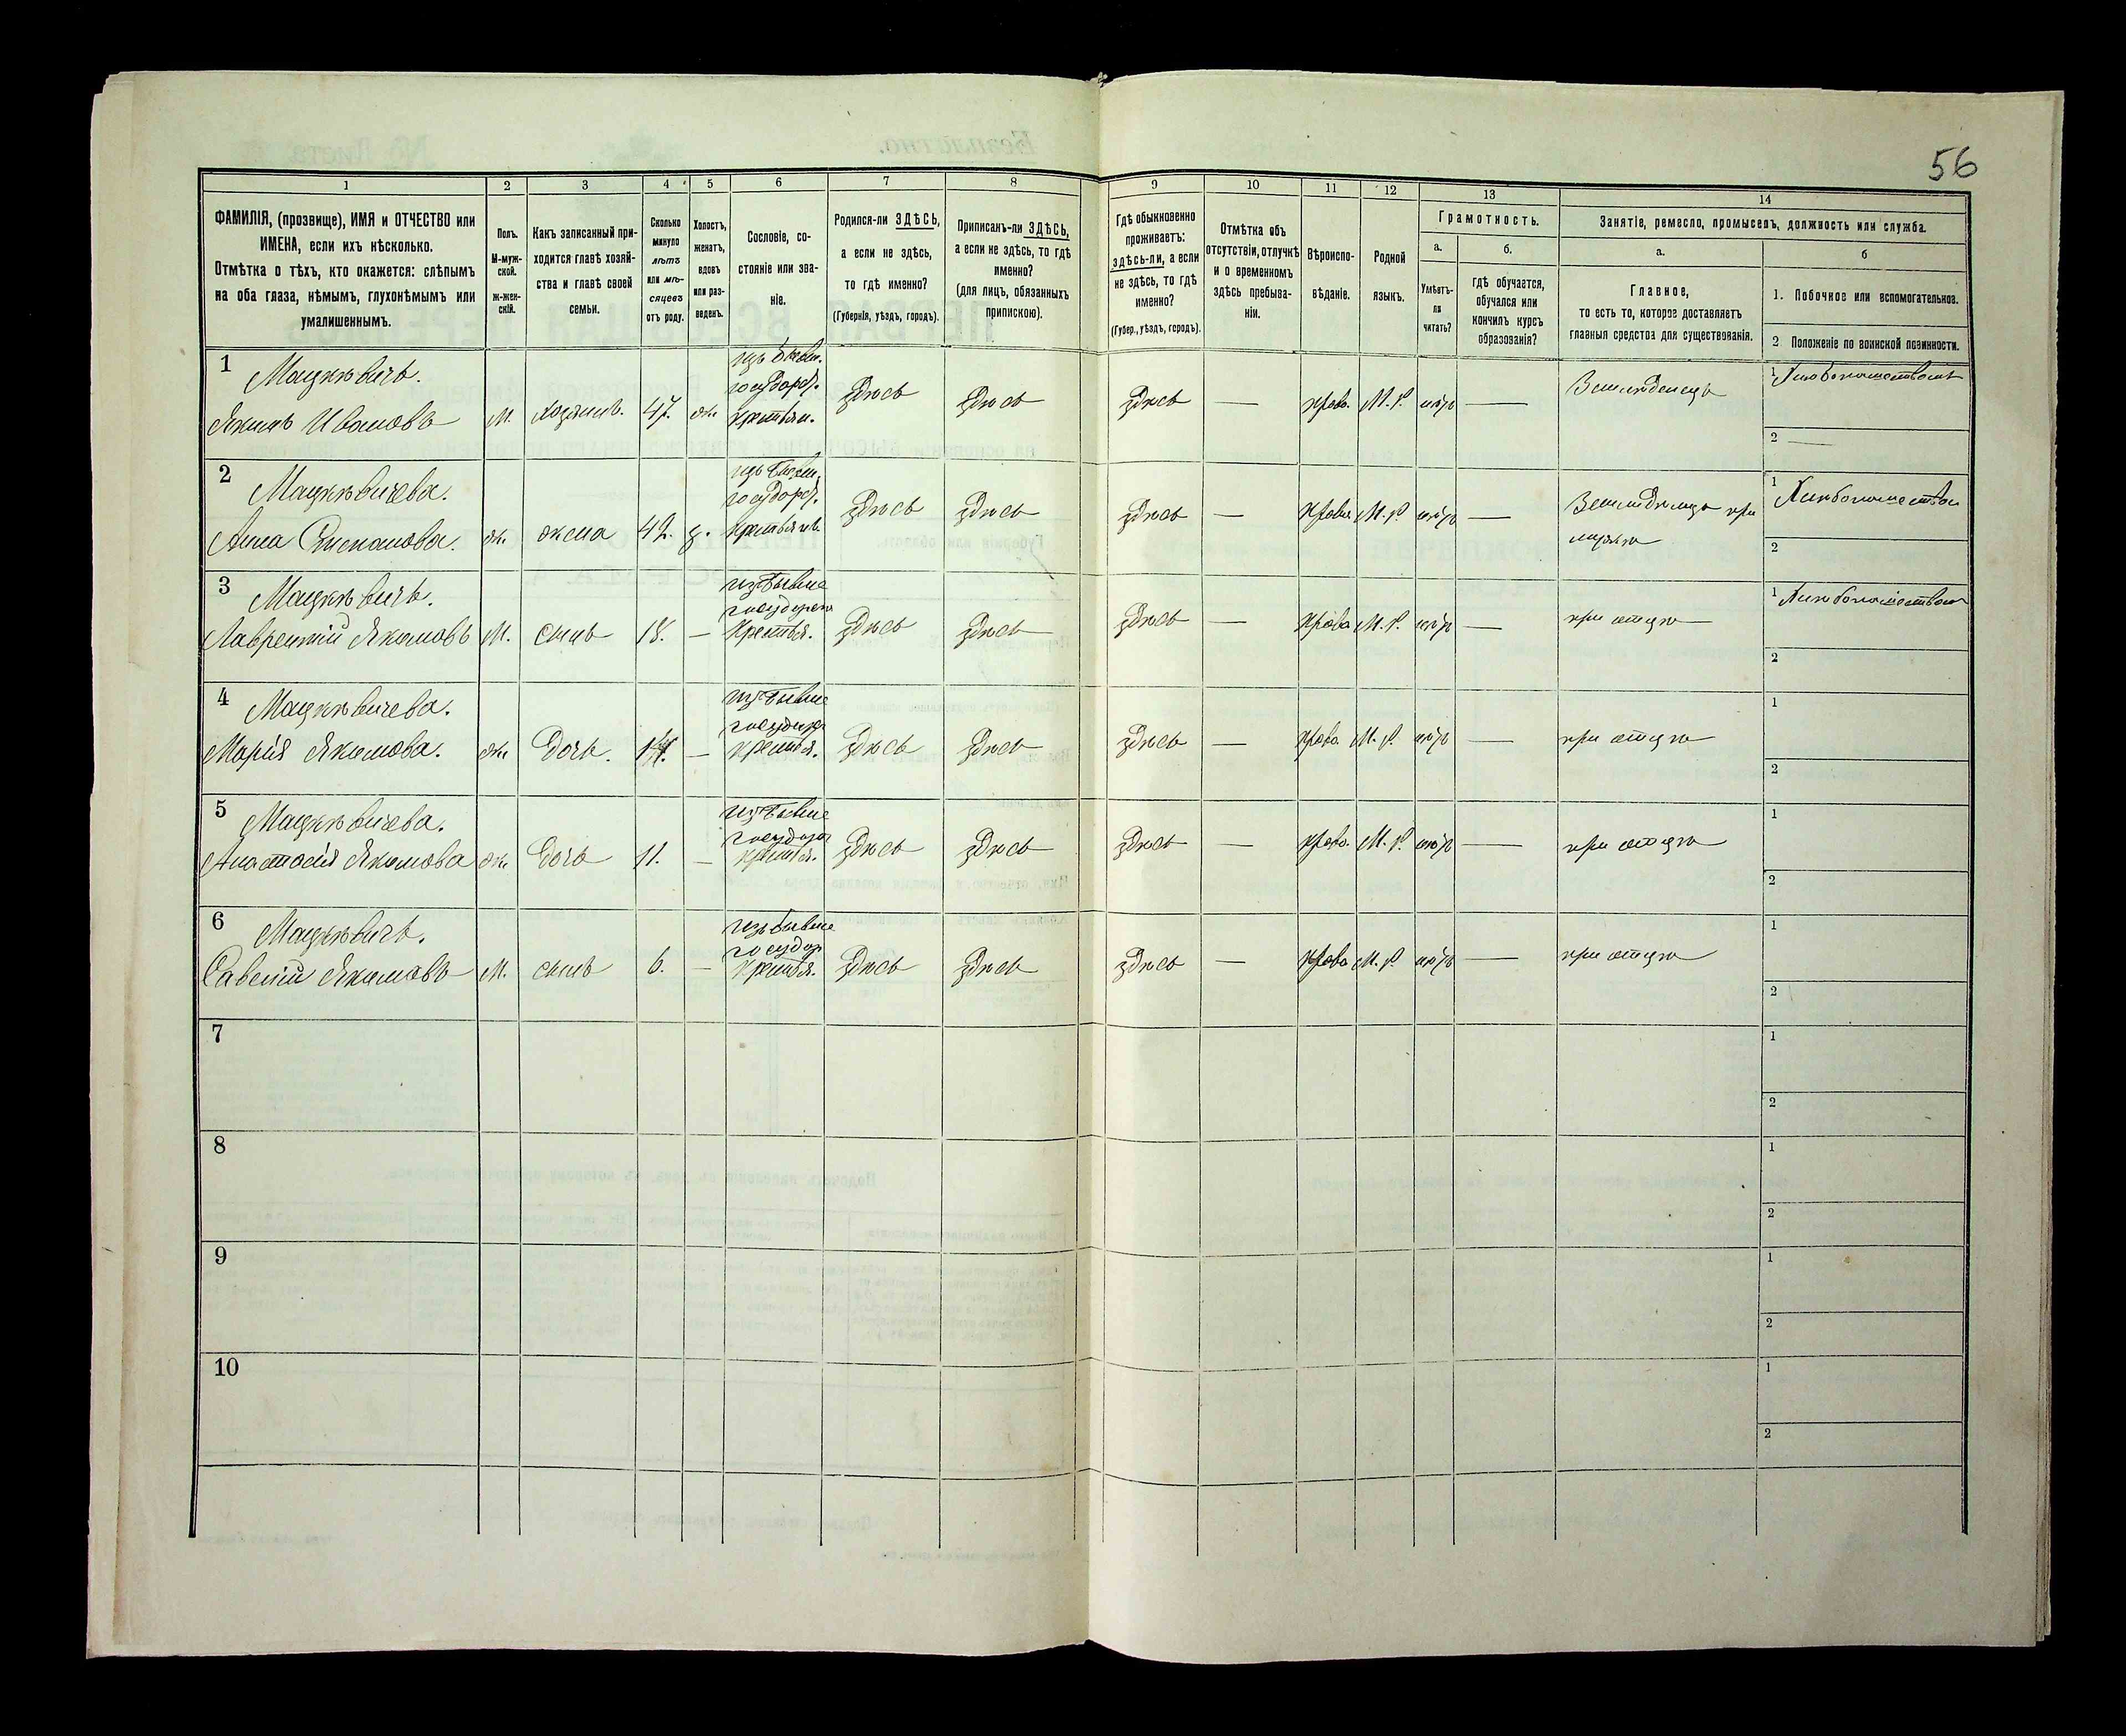 56
1 2 3 4 5 6 7 8 9 10 11 12 13 14
ФАМИЛІЯ, (прозвище), ИМЯ и ОТЧЕСТВО или
ИМЕНА, если ихъ нѣсколько.
Отмѣтка о тѣхъ, кто окажется: слѣпымъ
на оба глаза, нѣмымъ, глухонѣмымъ или
умалишеннымъ.
Полъ.
М-муж-
ской.
ж-жен-
скій.
Какъ записанный при-
ходится главѣ хозяй-
ства и главѣ своей
семьи.
Сколько
минуло
лѣтъ
или мѣ-
сяцевъ
отъ роду.
Холостъ,
женатъ,
вдовъ
или раз-
веденъ.
Сословіе, со-
стояніе или зва-
ніе.
Родился-ли ЗДѢСЬ,
а если не здѣсь,
то гдѣ именно?
(Губернія, уѣздъ, городъ).
Приписанъ-ли ЗДѢСЬ,
а если не здѣсь, то гдѣ
именно?
(для лицъ, обязанныхъ
припискою).
Гдѣ обыкновенно
проживаетъ:
здѣсь-ли, а если
не здѣсь, то гдѣ
именно?
(Губер., уѣздъ, городъ).
Отмѣтка объ
отсутствіи, отлучкѣ
и о временномъ
здѣсь пребыва-
ніи.
Вѣроиспо-
вѣданіе.
Родной
языкъ.
Грамотность.
а.
Умѣетъ-
ли
читать?
б.
гдѣ обучается,
обучался или
кончилъ курсъ
образованія?
Занятіе, ремесло, промыселъ, должность или служба.
а.
Главное,
то есть то, которое доставляетъ
главныя средства для существованія.
б
1. Побочное или вспомогательное.
2 Положеніе по воинской повинности.
1 Мацкѣвичъ.
Якимъ Ивановъ М. хозяинъ. 47. ж.
государ.
крестьян. здѣсь здѣсь здѣсь — право. М. Р. нѣтъ — Земледѣлецъ 1
2 —
2 Мацкѣвичева.
Анна жена 42. з.
государ.
здѣсь здѣсь здѣсь — М. Р. нѣтъ — при
мужѣ 1
2
3 Мацкѣвичъ.
Лаврентій Якимовъ М. сынъ 18. —
крестья. здѣсь здѣсь здѣсь — право М. Р. нѣтъ — при отцѣ 1
2
4 Мацкѣвичева.
Марія Якимова. ж. дочь. —
крестья. здѣсь здѣсь здѣсь — право. М. Р. нѣтъ — при отцѣ 1
2
5 Мацкѣвичева.
Анастасія Якимова ж. дочь 11. —
крестья. здѣсь здѣсь здѣсь — право. М. Р. нѣтъ — при отцѣ 1
2
6 Мацкѣвичъ.
Савелій Якимовъ М. сынъ 6. — изъ бывше
государ
крестья. здѣсь здѣсь здѣсь — право М. Р. нѣтъ — при отцѣ 1
2
7 1
2
8 1
2
9 1
2
10 1
2